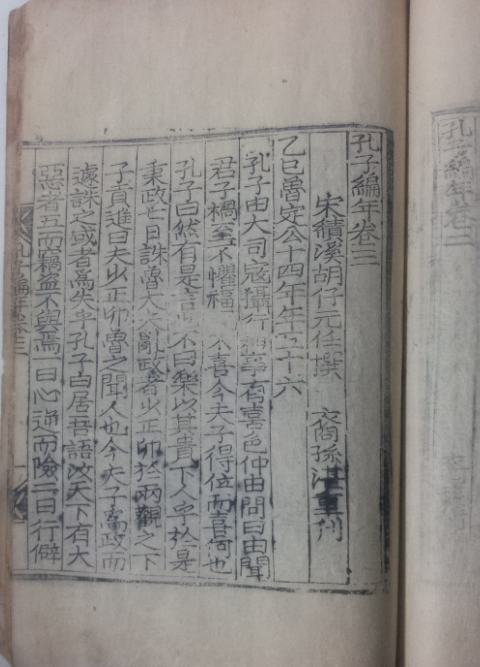 孔子編年卷二
孔子編年卷三
宋績溪胡仔元任撰 裔孫湛重刊
乙巳魯定公十四年年五十六
孔子由大司寇攝行相事有喜色仲由問曰由聞
君子禍至不懼福不喜今夫子得位而喜何也
孔子曰然有是言不曰樂以其貴下人乎於是
秉政七日誅魯大夫亂政者少正卯於兩觀之下
子貢進曰夫少正卯魯之聞人也今夫子爲政而
遽誅之或者爲失乎孔子曰居吾語汝天下有大
惡者五而竊盜不與焉一曰心通而險二曰行僻
孔子編年卷三